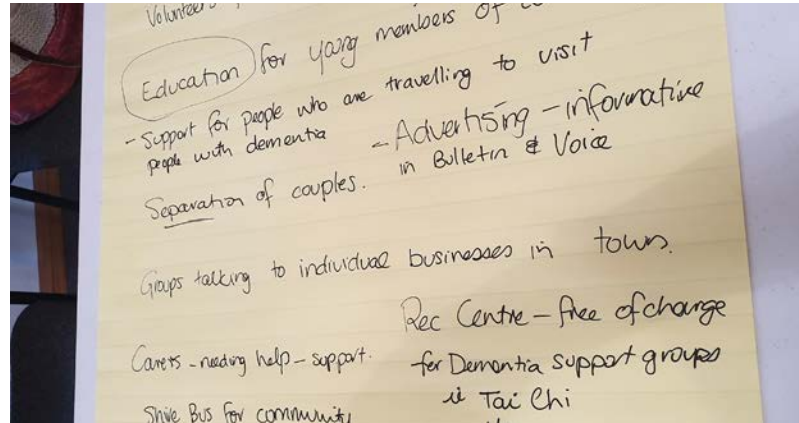 Volunteers
Education for young members of
- Support for people who are travelling to visit
people with dementia
- Advertising - informative
in Bulletin & Voice
Separation of couples.
Groups talking to individual businesses in town.
Rec Centre - free of charge
for Dementia support groups
Carers - needing help - support.
ie Tai Chi
Shire Bus for community